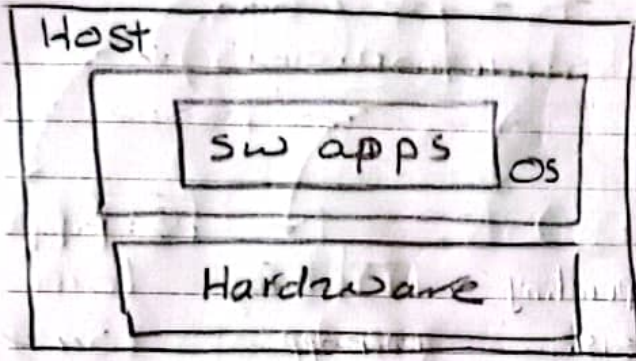 Host
sw apps
OS
Hardware